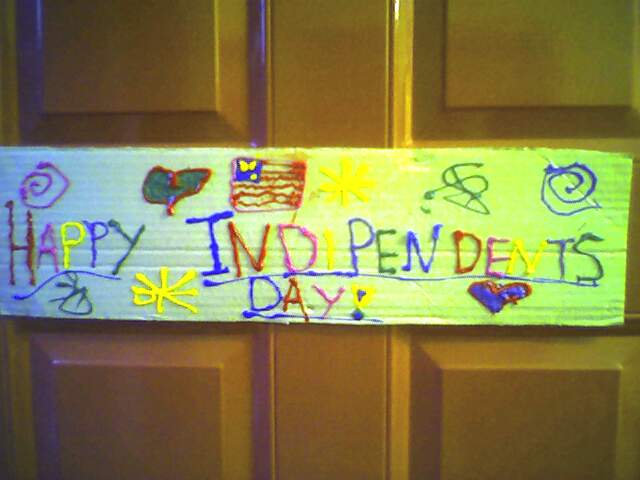 HAPPY INDIPENDENTS
DAY!